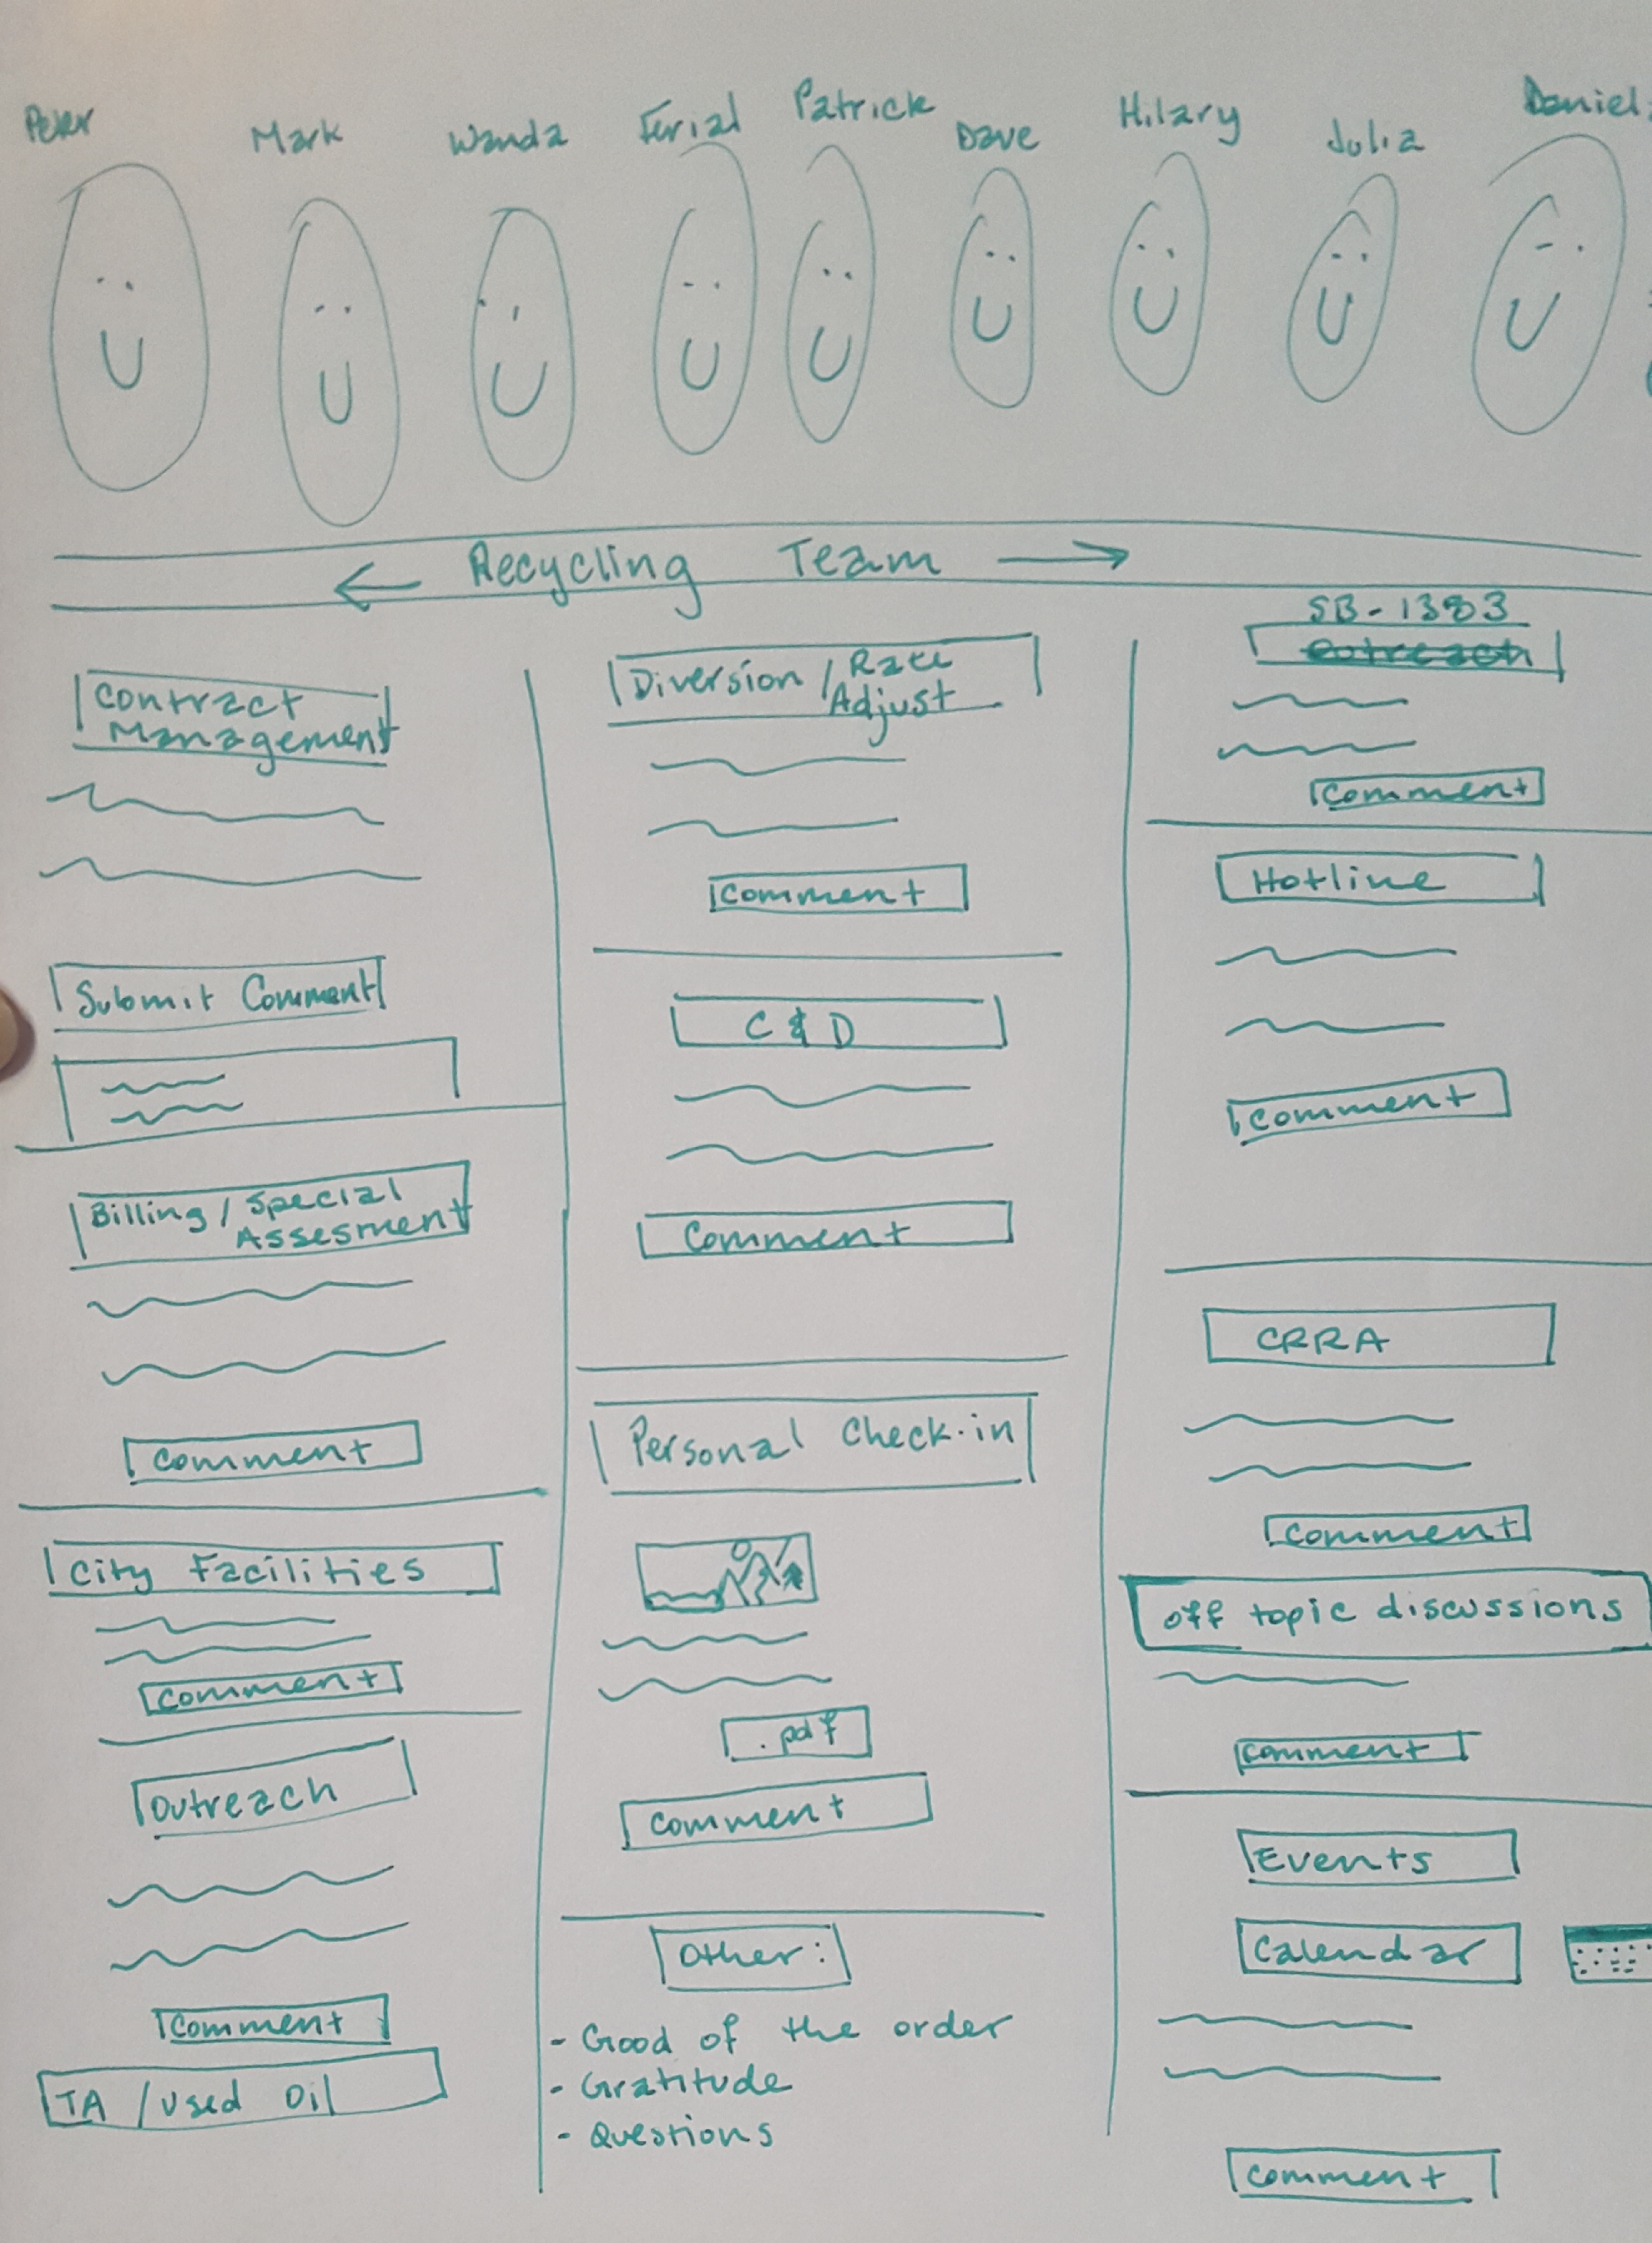 Peter
Mark
Wanda
Ferial
Patrick
Dave
Hilary
Julia
Daniel
← Recycling Team →
Contract
Management
Submit Comment
Billing / Special
Assesment
Comment
City Facilities
Comment
Outreach
Comment
TA / Used Oil
Diversion / Rate
Adjust
Comment
C & D
Comment
Personal Check-in
.pdf
Comment
Other:
- Good of the order
- Gratitude
- Questions
SB-1383
outreach
Comment
Hotline
Comment
CRRA
Comment
off topic discussions
Comment
Events
Calendar
Comment